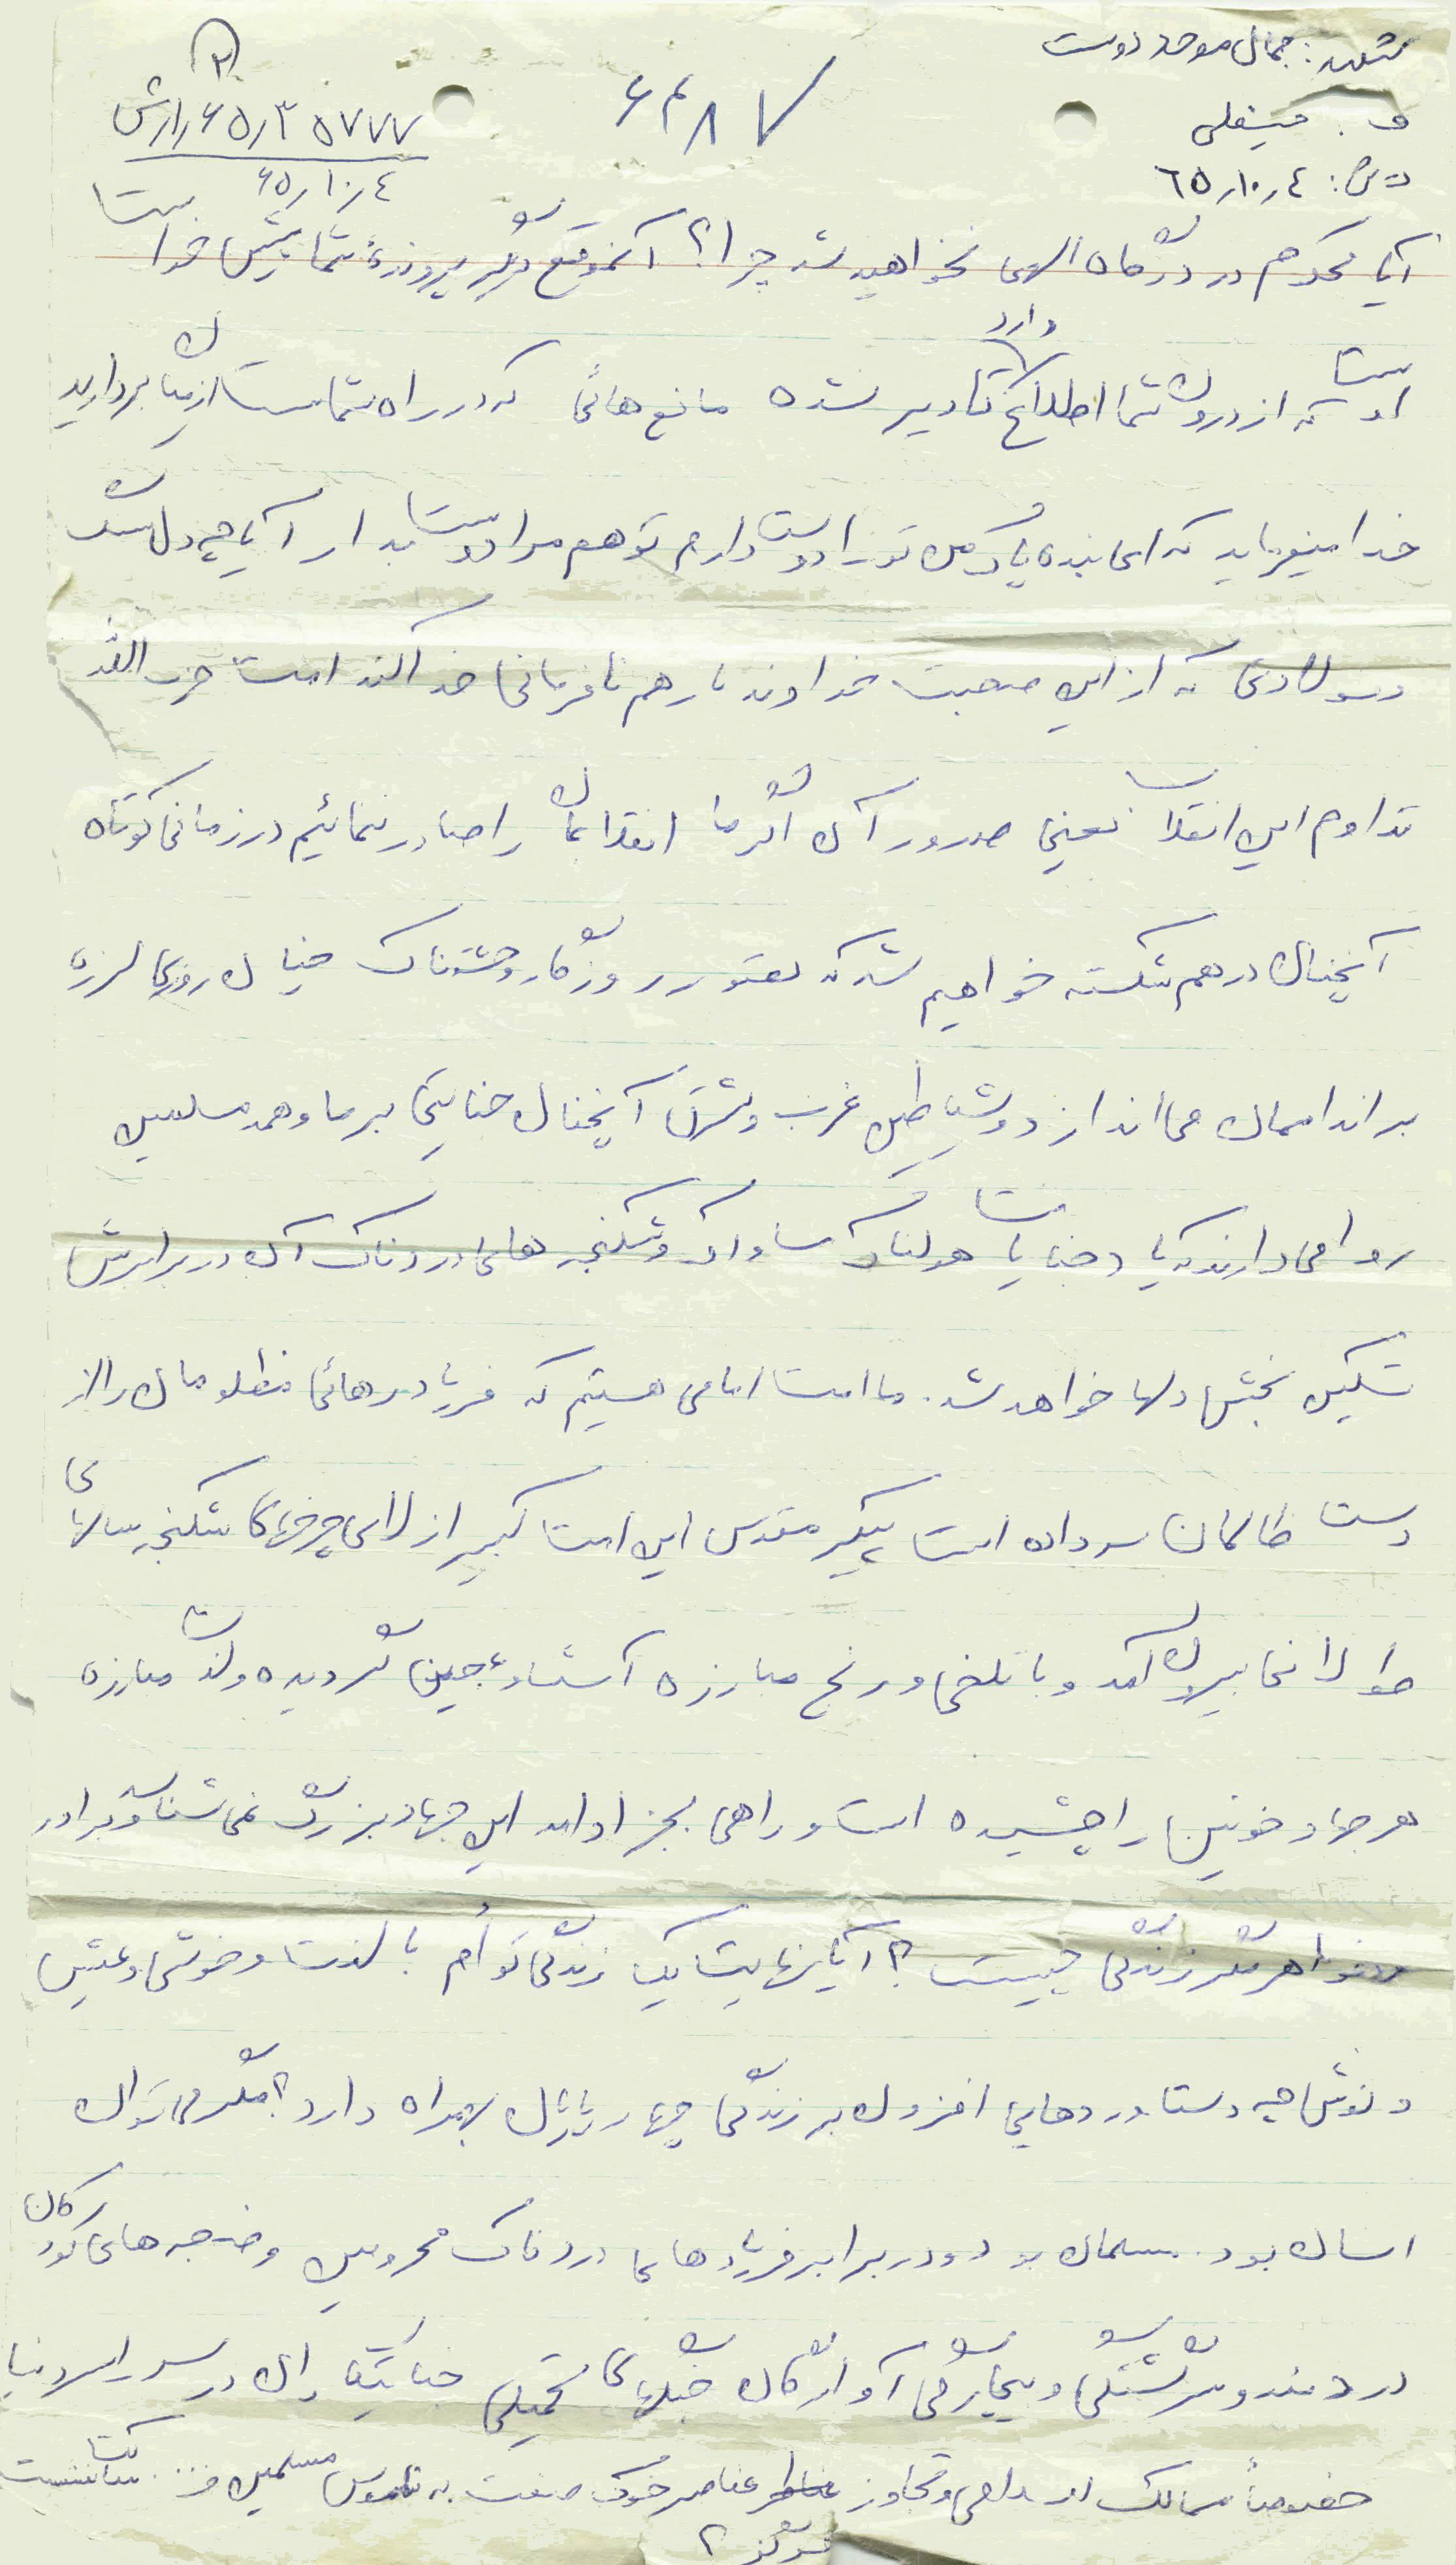 شهید: جمال موحد دوست
ف. حسینعلی
ت ش: ٦٥٫١٠٫٤
۶۴۸۷
۲
۶۵٫۳۵۷۷۷ رازش
۶۵٫۱۰٫٤
آیا محکوم در درگاه الهی نخواهید شد چرا؟ آنموقع دیگر پرونده شما پیش خداست
اوست که از درون شما اطلاع دارد تا دیر نشده مانع هائی که در راه شماست از میان بردارید
خدا میفرماید که ای بنده پاک من تو را دوست دارم تو هم مرا دوست بدار آیا چه دل سنگ
و سولادی که از این صحبت خداوند باز هم نافرمانی خدا کند امت حزب الله
تداوم این انقلاب یعنی صدور آن اگر ما انقلابمان را صادر ننمائیم در زمانی کوتاه
آنچنان در هم شکسته خواهیم شد که تصور روزگار وحشتناک چنان روزی لرزه
بر انداممان می اندازد و شیاطین غرب و شرق آنچنان جنایتی بر ما و همه مسلمین
روا می دارند که یاد جنایات هولناک ساواک و شکنجه های دردناک آن در برابرش
تسکین بخش دلها خواهد شد. ما امت امامی هستیم که فریاد رهائی مظلومان را از
دست ظالمان سر داده است پیکر مقدس این امت کبیر از لای چرخهای شکنجه سالهای
طولانی بیرون آمد و با تلخی و رنج مبارزه آشنا و عجین گردیده و لذت مبارزه
هر جهاد خونین را چشیده است و راهی بجز ادامه این جهاد بزرگ نمی شناسد و برادر
و خواهر مگر زندگی چیست؟ آیا نهایت یک زندگی توأم با لذت و خوشی و عیش
و نوش چه دستاوردهایی افزون بر زندگی چهارپایان بهمراه دارد؟ مگر می توان
انسان بود. مسلمان بود و در برابر فریادهای دردناک محرومین و ضجه های کودکان
دردمند و سرگشتگی و بیچارگی آوارگان جنگهای تحمیلی جنایتکاران در سراسر دنیا
خصوصاً ممالک اسلامی و تجاوز عناصر خوک صفت به ناموس مسلمین و... ساکت نشست
هرگز؟